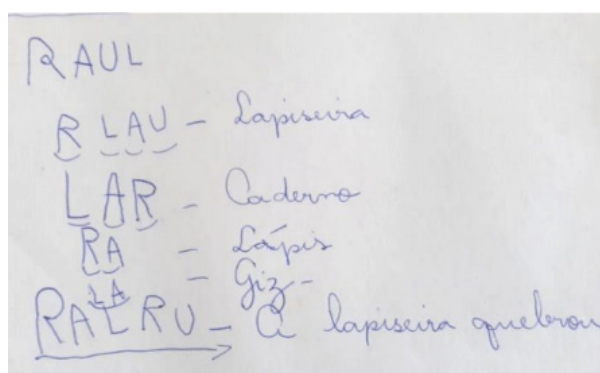 RAUL
R LAU - Lapiseira
LAR - Caderno
RA - Lápis
LA - Giz -
RALRU - A lapiseira quebrou